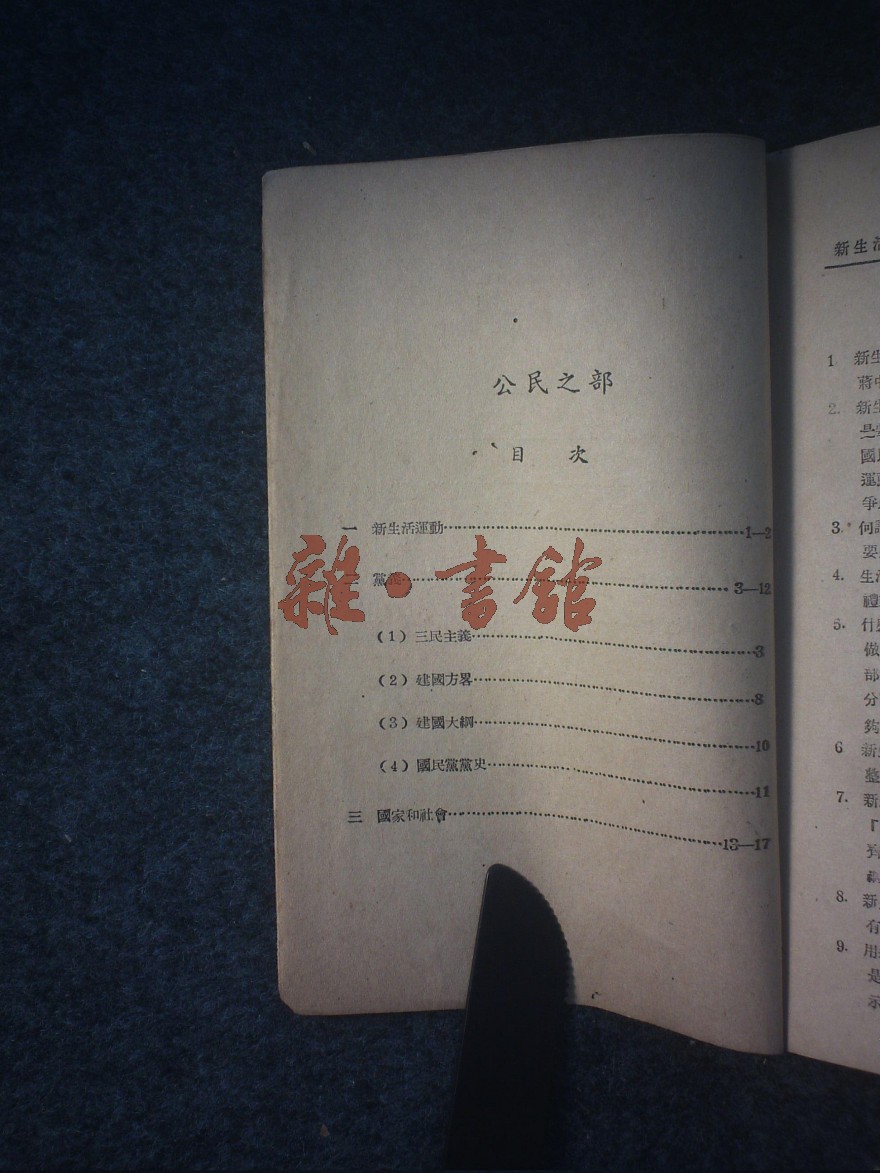 公民之部
目 次
一 新生活運動 1—2
二 黨義 3—12
(1) 三民主義 3
(2) 建國方畧 8
(3) 建國大綱 10
(4) 國民黨黨史 11
三 國家和社會 13—17
雜·書館
新生活
1. 新生
蔣中
2. 新生
國民
運動
爭
3. 何謂
要
4. 生活
禮
5. 什
做
部
分
夠
6 新
整
7. 新
『
8. 新
有
9. 用
是
示